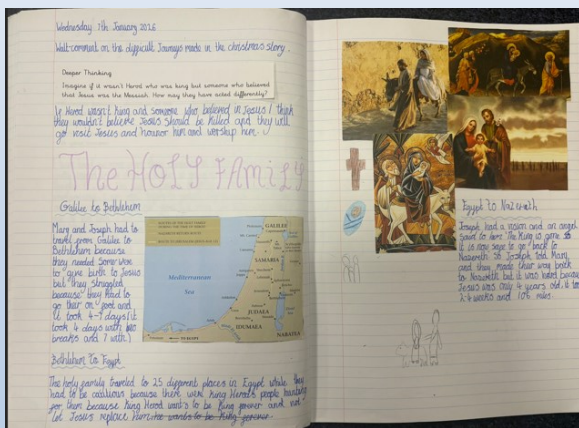 Wednesday 7th January 2026
Walt-comment on the difficult Journeys made in the christmas story.
Deeper Thinking
Imagine if it wasn't Herod who was king but someone who believed
that Jesus was the Messiah. How may they have acted differently?
If Herod wasn't King and someone who believed in Jesus I think
they wouldn't believe Jesus should be killed and they will
go visit Jesus and honour him and worship him.
The HOLY FAMILY
Galilee to Bethlehem
Mary and Joseph had to
travel from Galilee to
Bethlehem because
they needed some were
to give birth to Jesus
but they struggled
because they had to
go their on foot and
it took 4-7 days (it
took 4 days with no
breaks and 7 with)
Mediterranean
Sea
GALILEE
SAMARIA
JUDAEA
IDUMAEA
NABATAEA
TO EGYPT
Bethlehem to Egypt
The holy family traveled to 25 different places in Egypt while they
had to be cautious because there were King Herod's people hunting
for them because King Herod wants to be King forever and not
let Jesus replace him. he wants to be King forever
Egypt to Nazareth
Joseph had a vision and an angel
Came to him. The King is gone so
it is now safe to go back to
Nazareth so Joseph told Mary
and they made their way back
to Nazareth but it was hard because
Jesus was only 4 years old. it took
2-4 weeks and 106 miles.